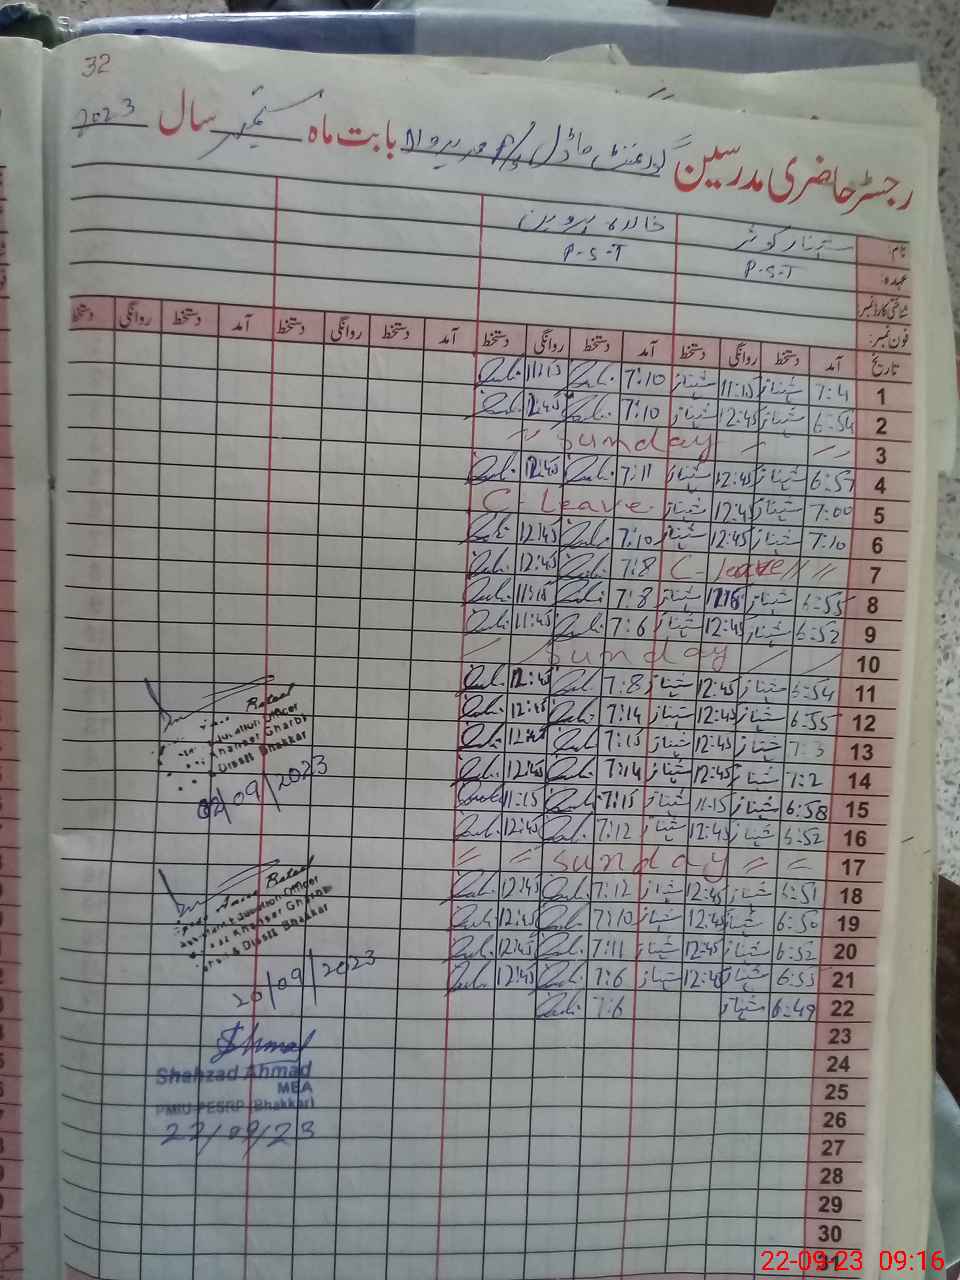 32
رجسٹر حاضری مدرسین گورنمنٹ ماڈل P/S بابت ماہ ستمبر سال 2023
نام: شہناز کوثر خالدہ پروین
عہدہ: P-S-T P-S-T
شناختی کارڈ نمبر:
فون نمبر:
تاریخ آمد دستخط روانگی دستخط آمد دستخط روانگی دستخط آمد دستخط روانگی دستخط آمد دستخط روانگی دستخط
1 7:4 شہناز 11:15 شہناز 7:10 11:15
2 6:54 شہناز 12:45 شہناز 7:10 12:45
3 Sunday
4 6:57 شہناز 12:45 شہناز 7:11 12:45
5 7:00 شہناز 12:45 شہناز C-Leave
6 7:10 شہناز 12:45 شہناز 7:10 12:45
7 C-leave 7:8 12:45
8 6:55 شہناز شہناز 7:8 11:15
9 6:52 شہناز 12:45 شہناز 7:6 11:45
10 Sunday
11 6:54 شہناز 12:45 شہناز 7:8 12:45
12 6:55 شہناز 12:45 شہناز 7:14 12:45
13 7:3 شہناز 12:45 شہناز 7:15 12:45
14 7:2 شہناز 12:45 شہناز 7:14 12:45
15 6:58 شہناز 11:15 شہناز 7:15 11:15
16 6:52 شہناز 12:45 شہناز 7:12 12:45
17 Sunday
18 6:51 شہناز 12:45 شہناز 7:12 12:45
19 6:50 شہناز 12:45 شہناز 7:10 12:45
20 6:52 شہناز 12:45 شہناز 7:11 12:45
21 6:53 شہناز 12:45 شہناز 7:6 12:45
22 6:49 شہناز 7:6
23
24
25
26
27
28
29
30
31
Officer
Khanser Gharbi
Distt Bhakkar
02/09/2023
Officer
Khanser Gharbi
Distt Bhakkar
20/09/2023
Ahmad
Shahzad Ahmad
MEA
PMIU-PESRP (Bhakkar)
22/09/23
22-09-23 09:16